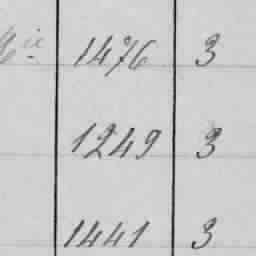 1476 3
1249 3
1441 3